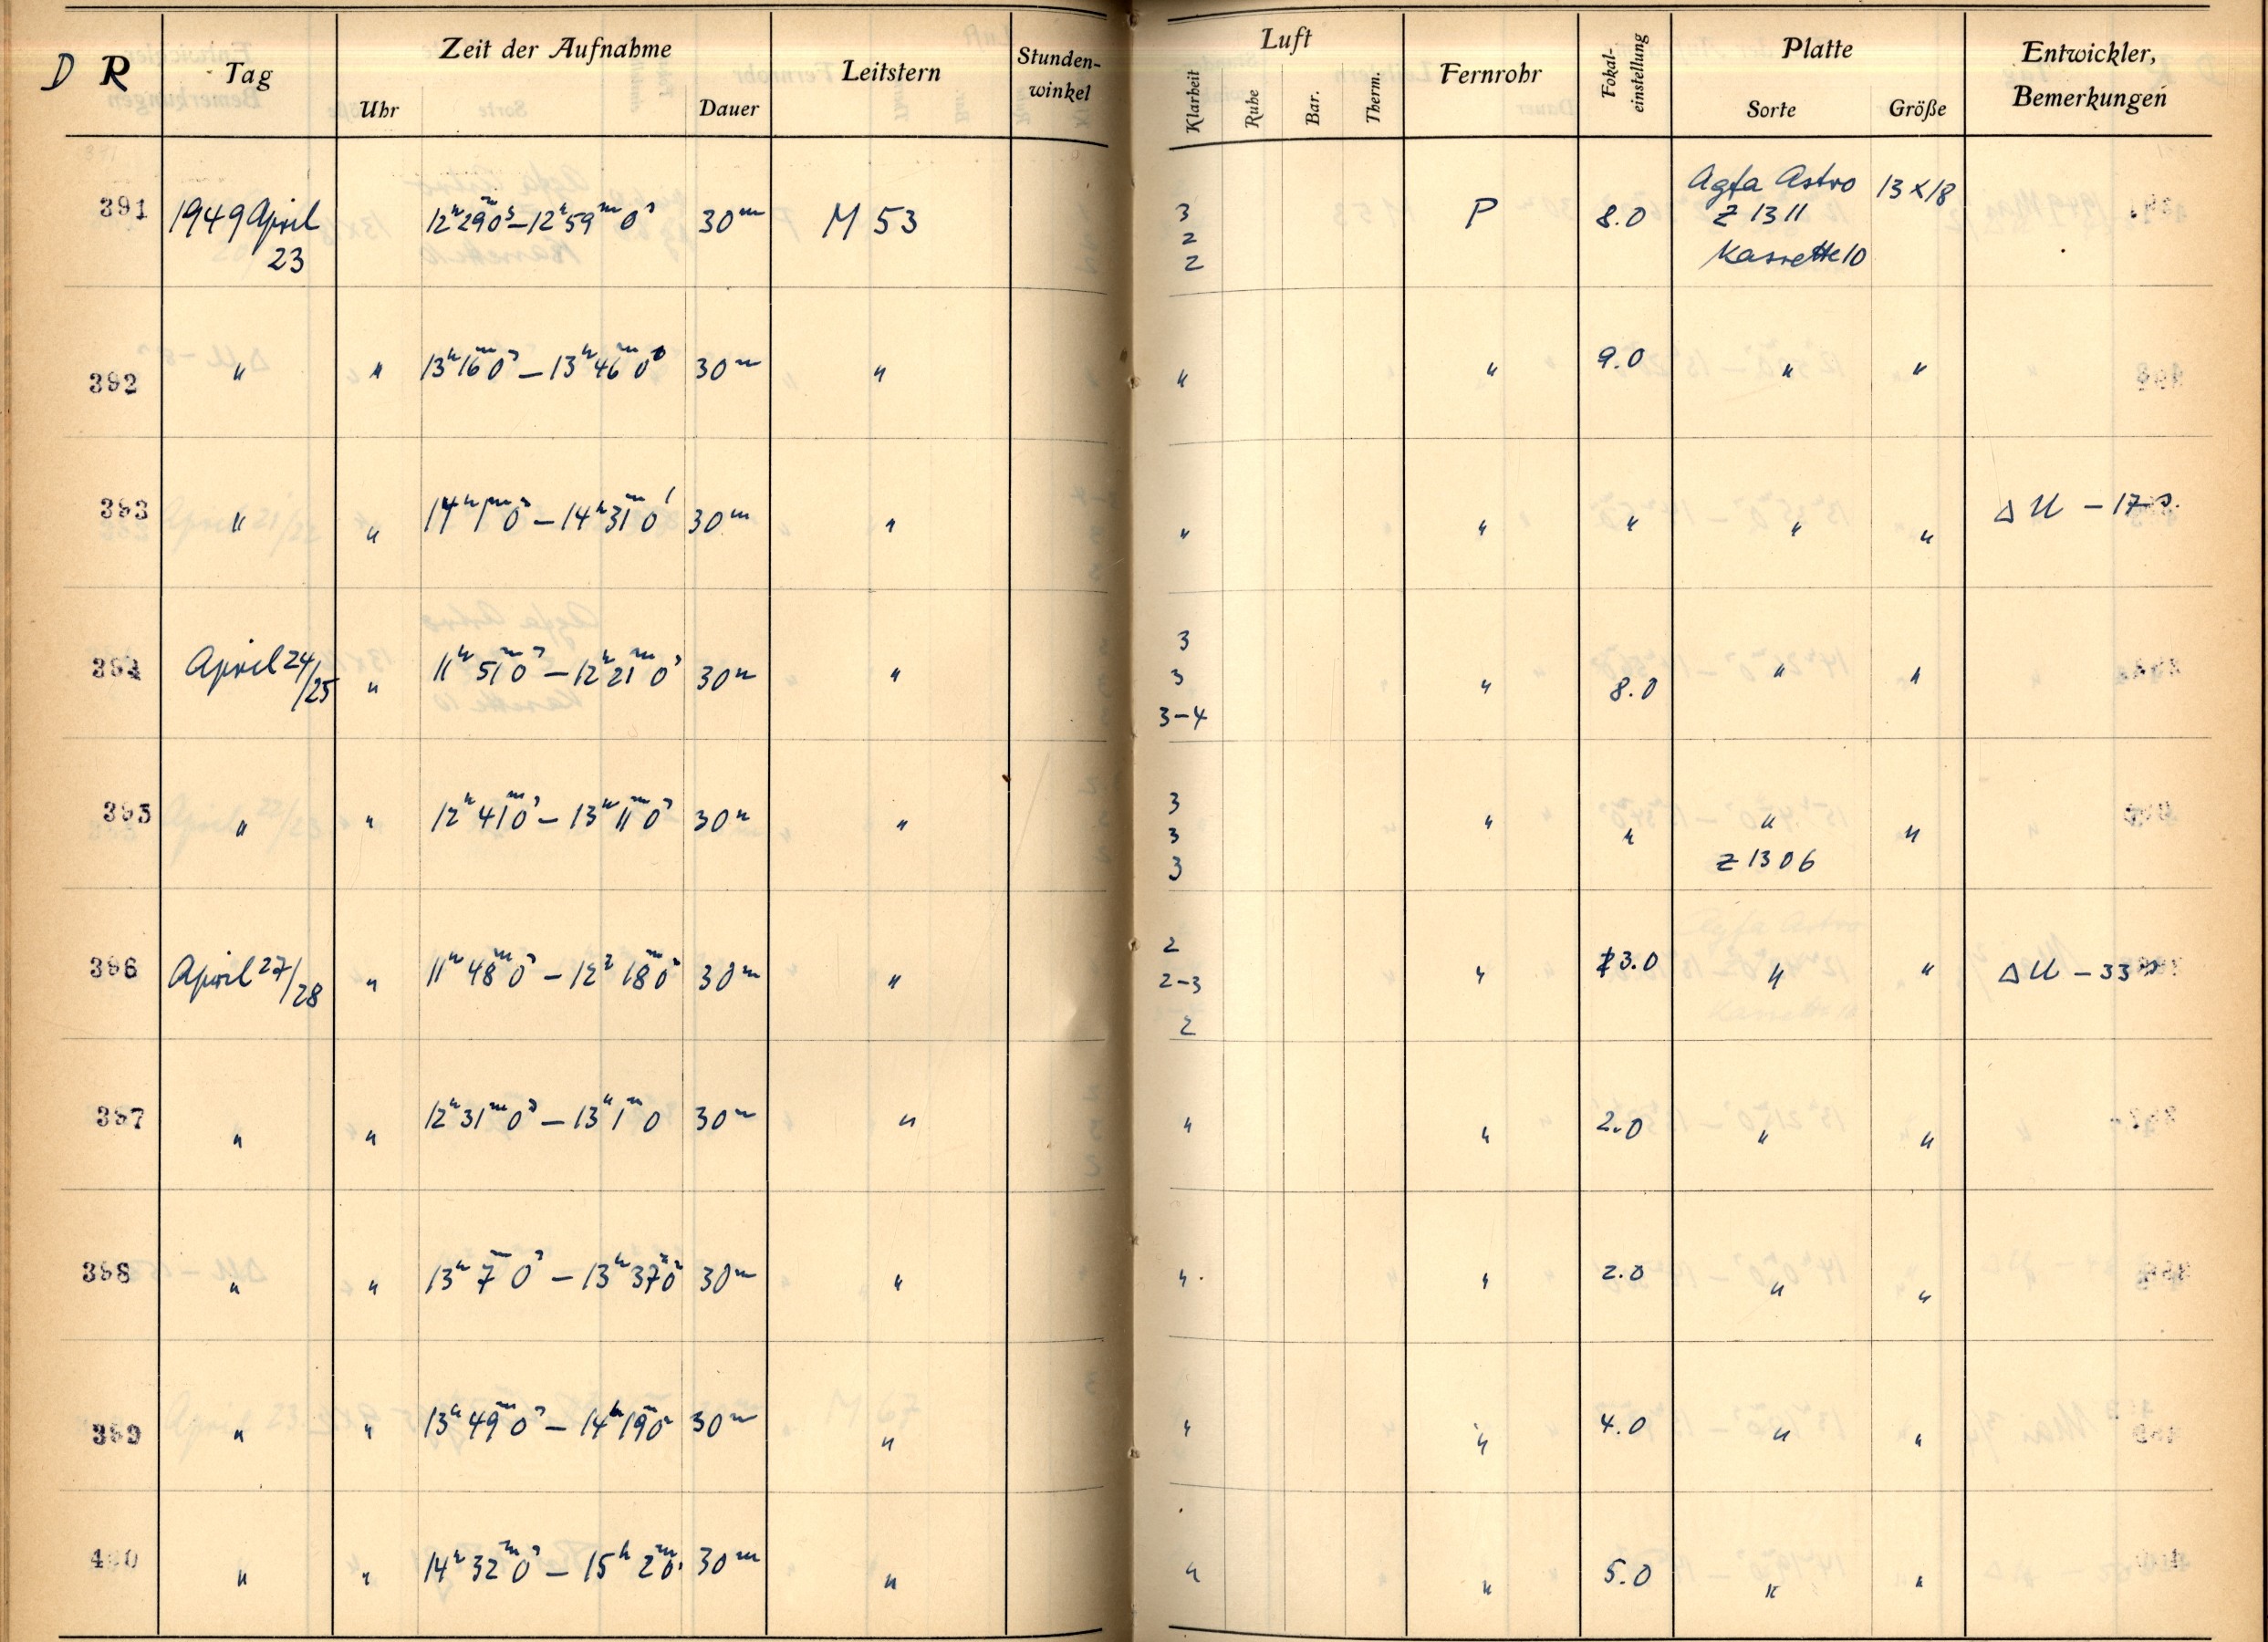 D R Tag Zeit der Aufnahme Leitstern Stunden-winkel Luft Fernrohr Fokal-einstellung Platte Entwickler, Bemerkungen
Uhr Dauer Klarheit Ruhe Bar. Therm. Sorte Größe
391 1949 April 23 12h 29m 0s – 12h 59m 0s 30m M 53 3 2 2 P 8.0 Agfa Astro Z 1311 Kassette 10 13 X 18
392 " " 13h 16m 0s – 13h 46m 0s 30m " " " 9.0 " "
393 " " 14h 1m 0s – 14h 31m 0s 30m " " " " " " Δ U – 17s.
394 April 24/25 " 11h 51m 0s – 12h 21m 0s 30m " 3 3 3–4 " 8.0 " "
395 " " 12h 41m 0s – 13h 11m 0s 30m " 3 3 3 " " " Z 1306 "
396 April 27/28 " 11h 48m 0s – 12h 18m 0s 30m " 2 2–3 2 " 3.0 " " Δ U – 33s
397 " " 12h 31m 0s – 13h 1m 0 30m " " " 2.0 " "
398 " " 13h 7m 0s – 13h 37m 0s 30m " " " 2.0 " "
399 " " 13h 49m 0s – 14h 19m 0s 30m " " " 4.0 " "
400 " " 14h 32m 0s – 15h 2m 0s 30m " " " 5.0 " "